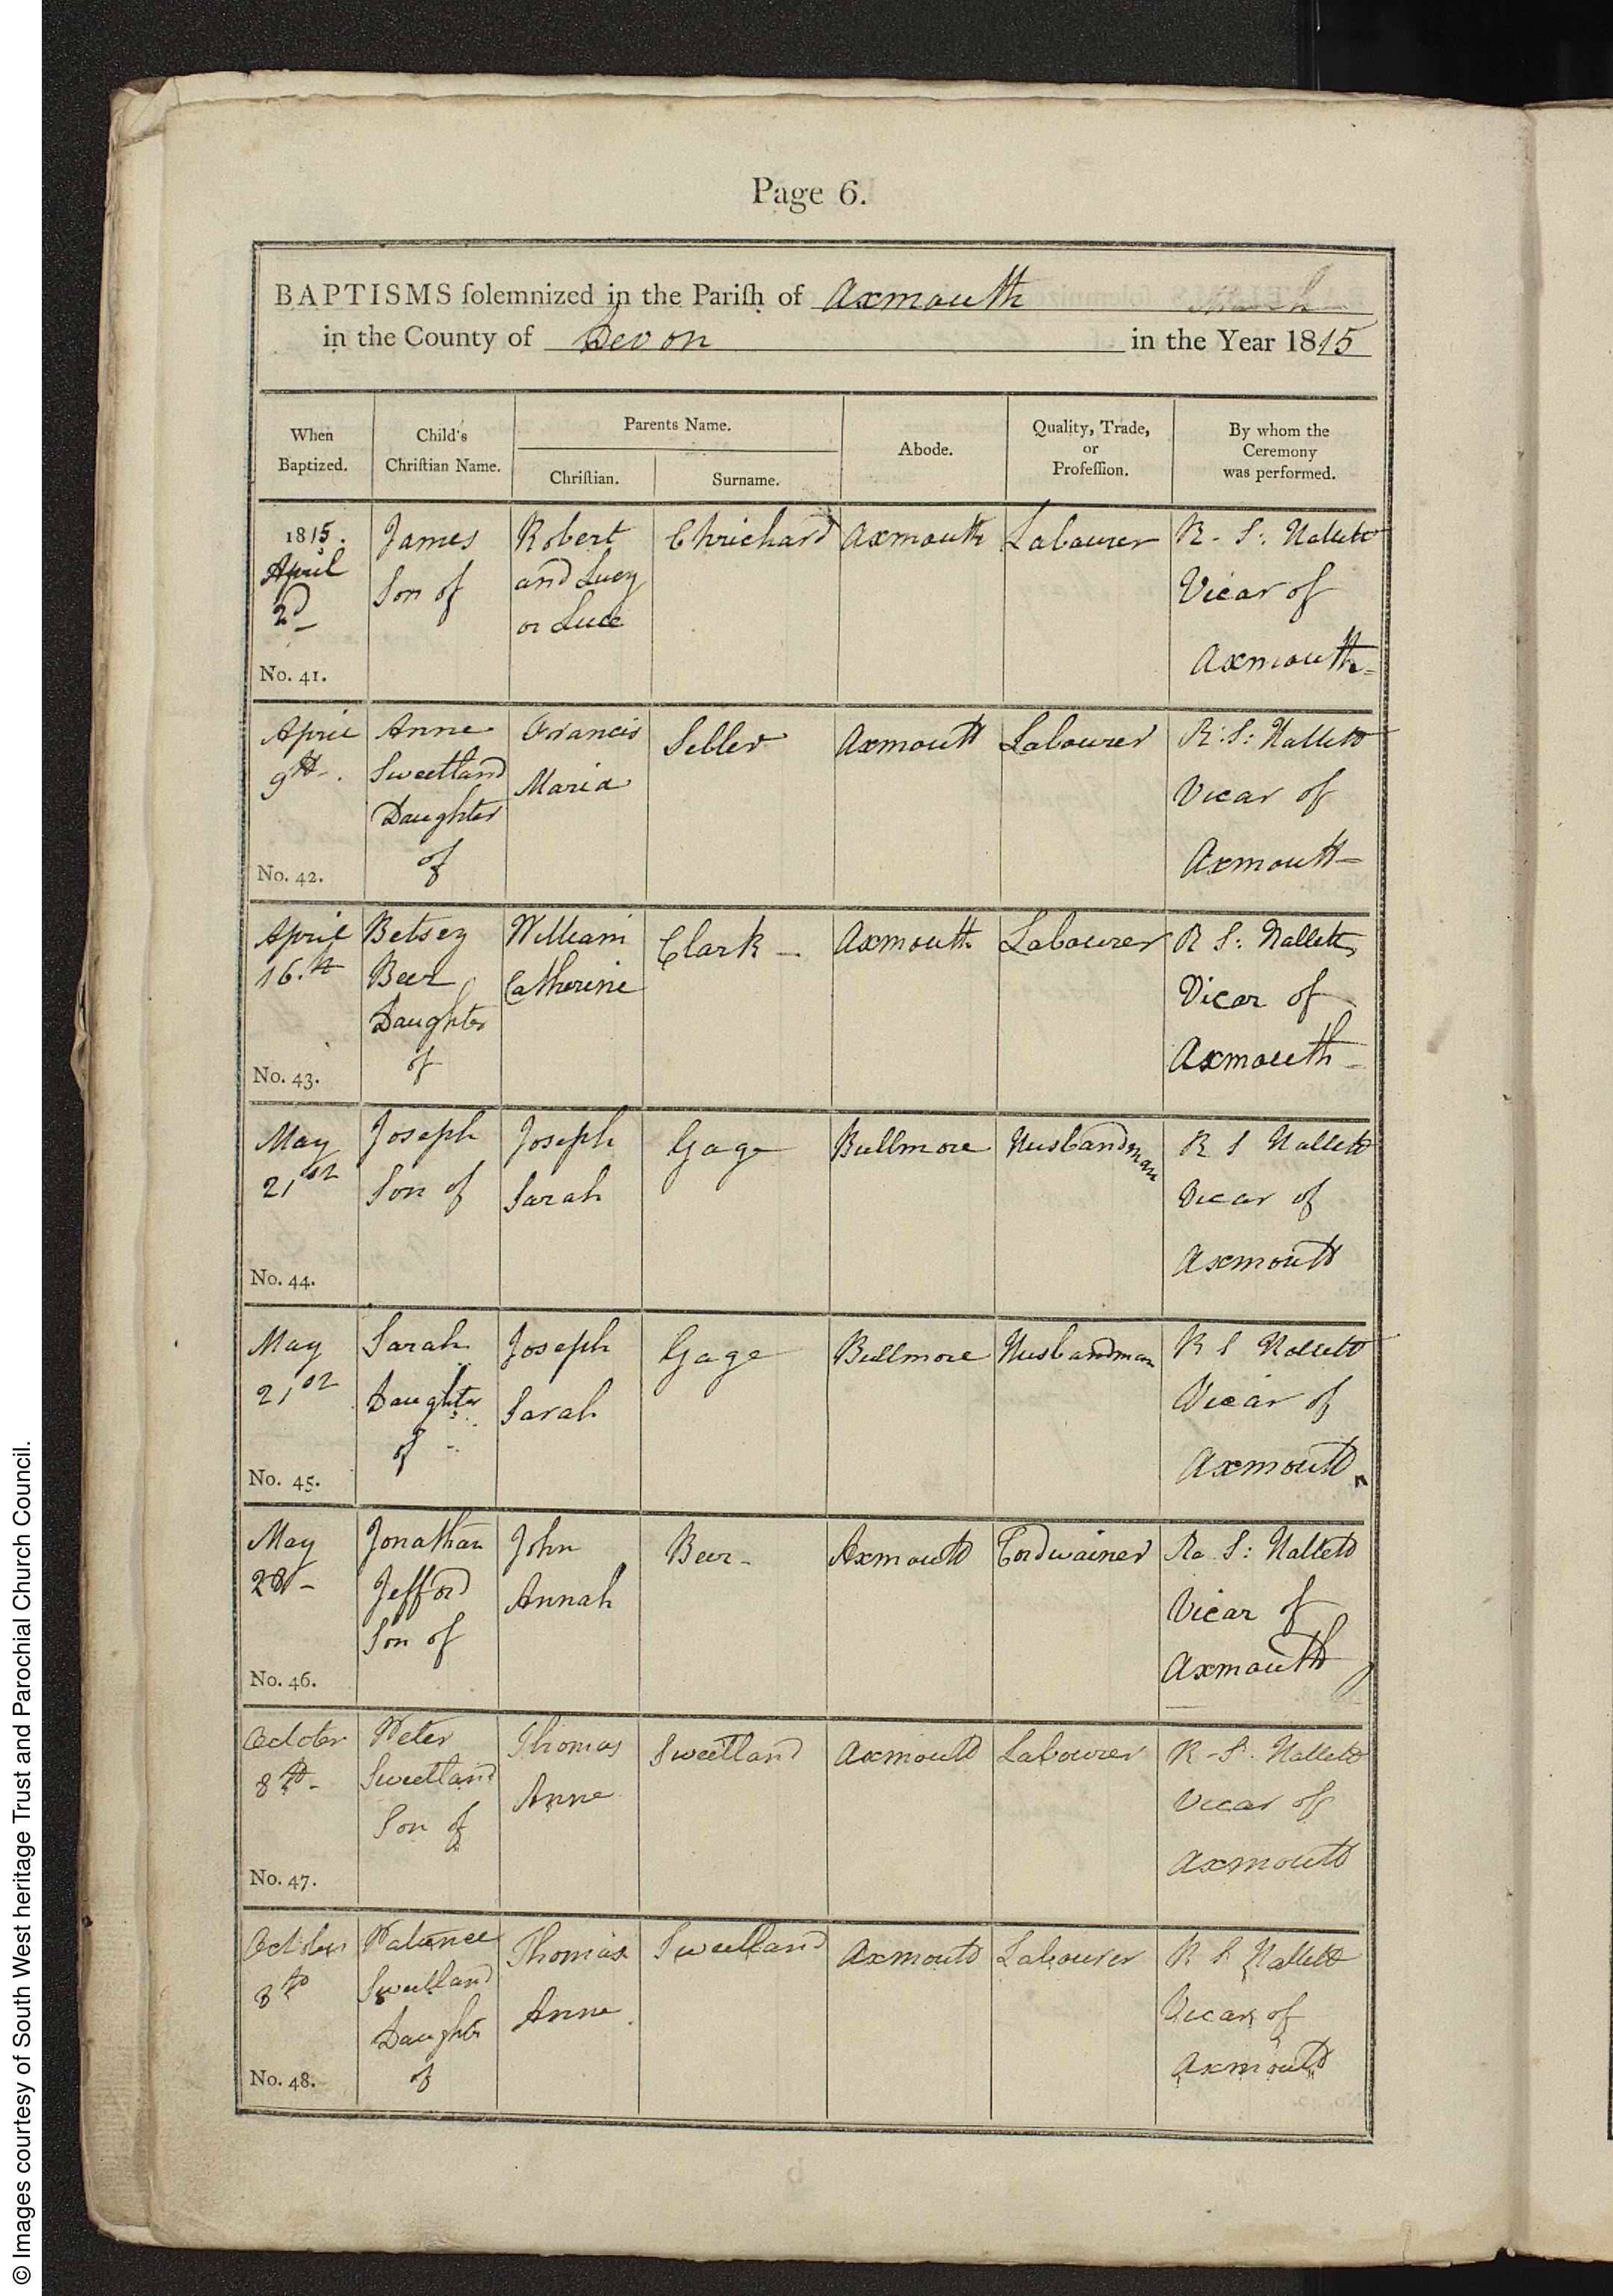 Page 6.
BAPTISMS solemnized in the Parish of Axmouth
in the County of Devon in the Year 1815
When Baptized.
Child's Christian Name.
Parents Name.
Christian.
Surname.
Abode.
Quality, Trade, or Profession.
By whom the Ceremony was performed.
1815. James Robert Chrichard Axmouth Labourer R. S. Hallett
April Son of and Lucy Vicar of
2d or Luce Axmouth
No. 41.
April Anne Francis Seller Axmouth Labourer R. S: Hallett
9th Sweetland Maria Vicar of
Daughter Axmouth
of
No. 42.
April Betsey William Clark Axmouth Labourer R S: Hallett
16th Beer Catherine Vicar of
Daughter Axmouth
of
No. 43.
May Joseph Joseph Gage Bullmore Husbandman R S Hallett
21st Son of Sarah Vicar of
Axmouth
No. 44.
May Sarah Joseph Gage Bullmore Husbandman R S Hallett
21st Daughter Sarah Vicar of
of Axmouth
No. 45.
May Jonathan John Beer Axmouth Cordwainer S: Hallett
28 Jefford Annah Vicar of
Son of Axmouth
No. 46.
October Peter Thomas Sweetland Axmouth Labourer R S. Hallett
8th Sweetland Anne Vicar of
Son of Axmouth
No. 47.
October Thomas Sweetland Axmouth Labourer R S Hallett
8th Sweetland Anne Vicar of
Daughter Axmouth
of
No. 48.
© Images courtesy of South West heritage Trust and Parochial Church Council.